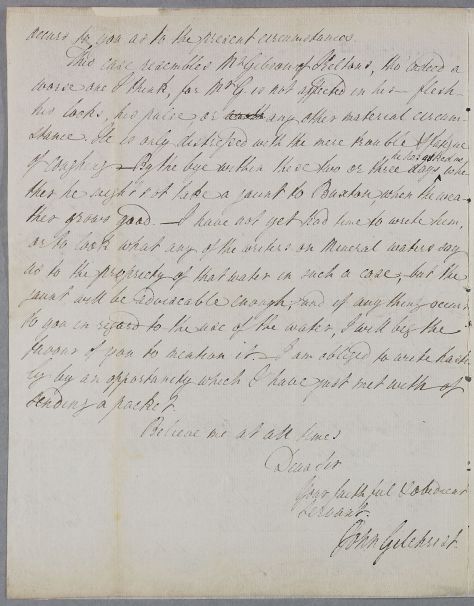 occurs to you as to the present circumstances.
This case resembles Mr Gibson of Skeltons, tho indeed a
worse one I think, for Mr G is not affected in his flesh
his looks, his pulse or any other material circum-
stance. He is only distressed with the mere trouble & fatigue
of coughing — By the bye within these two or three days he has asked me whe-
ther he might not take a jaunt to Buxton when the wea-
ther grows good. — I have not yet had time to write him,
or to look what any of the writers on mineral waters say
as to the propriety of that water in such a case, but the
jaunt will be advisable enough, and if any thing occurs
to you in regard to the use of the water, I will beg the
favour of you to mention it. I am obliged to write hasti-
ly by an opportunity which I have just met with of
sending a packet.
Believe me at all times
Dear Sir
Your faithful & obedient
Servant.
John Gilchrist.